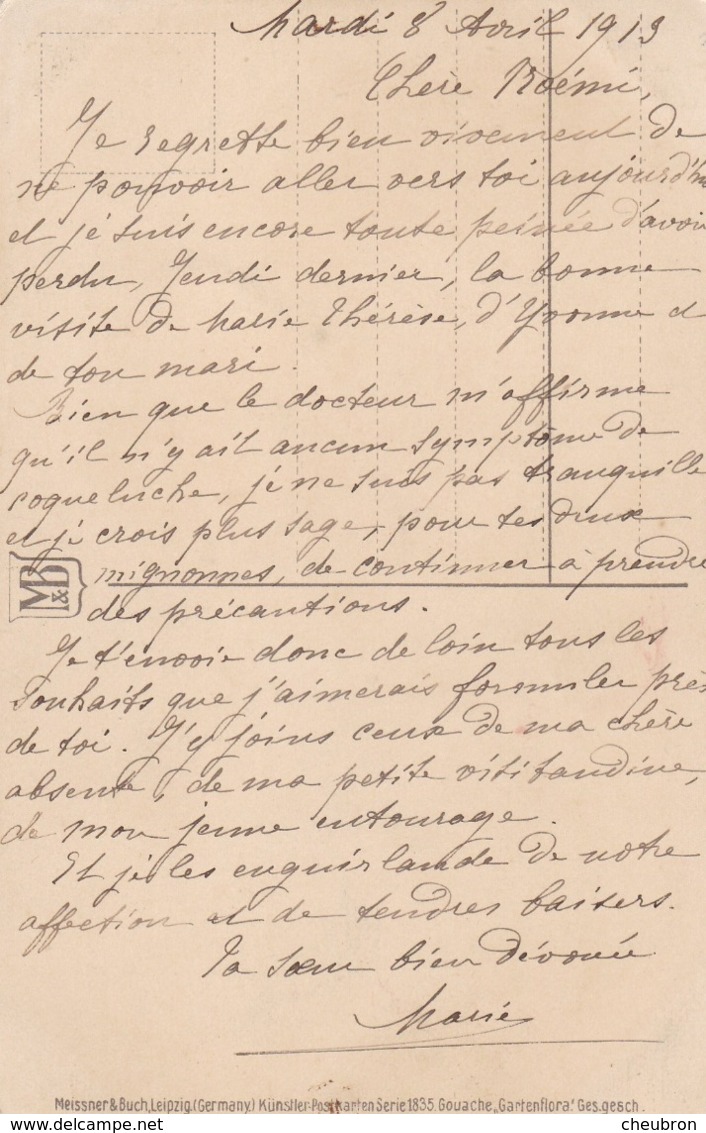 Mardi 8 Avril 1913
Chère Noémi,
Je regrette bien vivement de
ne pouvoir aller vers toi aujourd'hui
et je suis encore toute peinée d'avoir
perdu, Jeudi dernier, la bonne
visite de Marie Thérèse, d'Yvonne et
de ton mari.
Bien que le docteur m'affirme
qu'il n'y ait aucun symptôme de
coqueluche, je ne suis pas tranquille
et je crois plus sage, pour tes deux
mignonnes, de continuer à prendre
M&B
des précautions.
Je t'envoie donc de loin tous les
souhaits que j'aimerais formuler près
de toi. J'y joins ceux de ma chère
absente, de ma petite visitandine,
de mon jeune entourage.
Et je les enguirlande de notre
affection et de tendres baisers.
Ta sœur bien dévouée
Marie
Meissner & Buch, Leipzig. (Germany.) Künstler-Postkarten Serie 1835. Gouache „Gartenflora." Ges. gesch.
cheubron